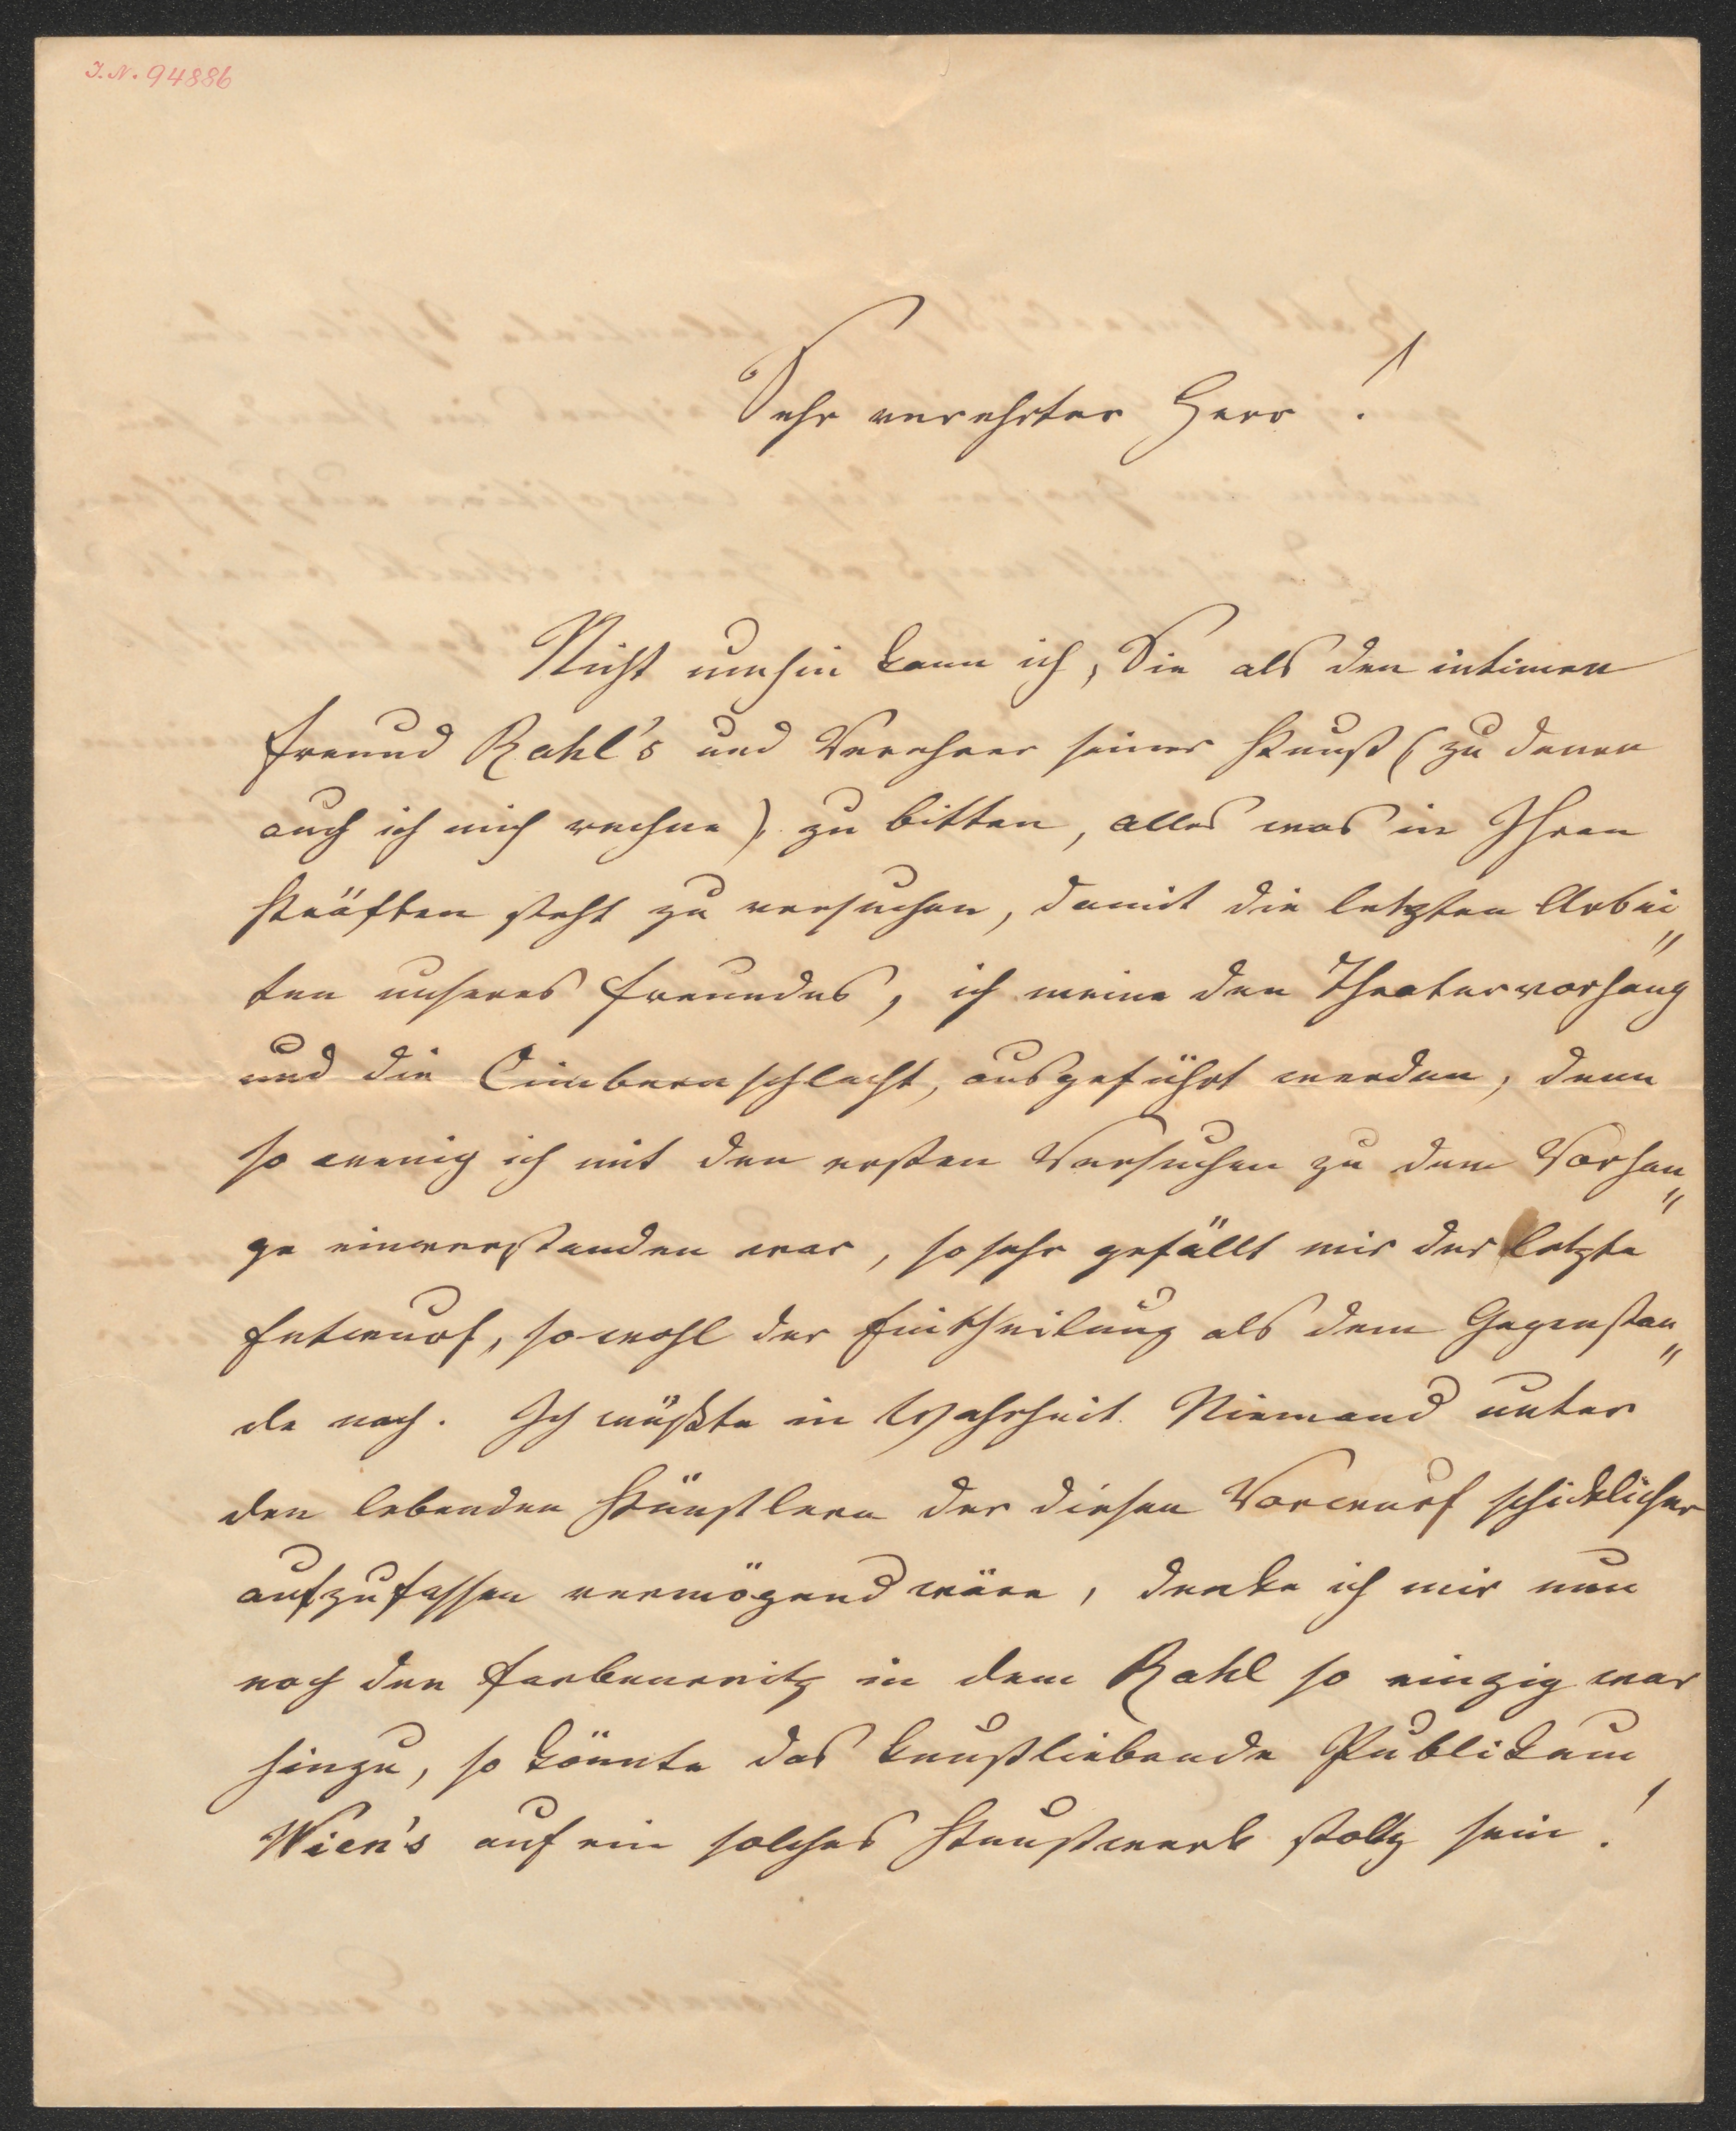 I. N. 94886
Sehr verehrter Herr!
Nicht umhin kann ich, Sie als den intimen
Freund Rahl's und Verehrer seiner Kunst (zu denen
auch ich mich rechne) zu bitten, alles was in Ihren
Kräften steht zu versuchen, damit die letzten Arbei„
ten unseres Freundes, ich meine den Theatervorhang
und die Cimbernschlacht, ausgeführt werden, denn
so wenig ich mit den ersten Versuchen zu dem Vorhan„
ge einverstanden war, so sehr gefällt mir der letzte
Entwurf, sowohl der Eintheilung als dem Gegenstan„
de nach. Ich wüßte in Wahrheit Niemand unter
den lebenden Künstlern der diesen Vorwurf schicklicher
aufzufassen vermögend wäre, denke ich mir nun
noch den Farbenreitz in dem Rahl so einzig war
hinzu, so könnte das kunstliebende Publikum
Wien's auf ein solches Kunstwerk stolz sein!